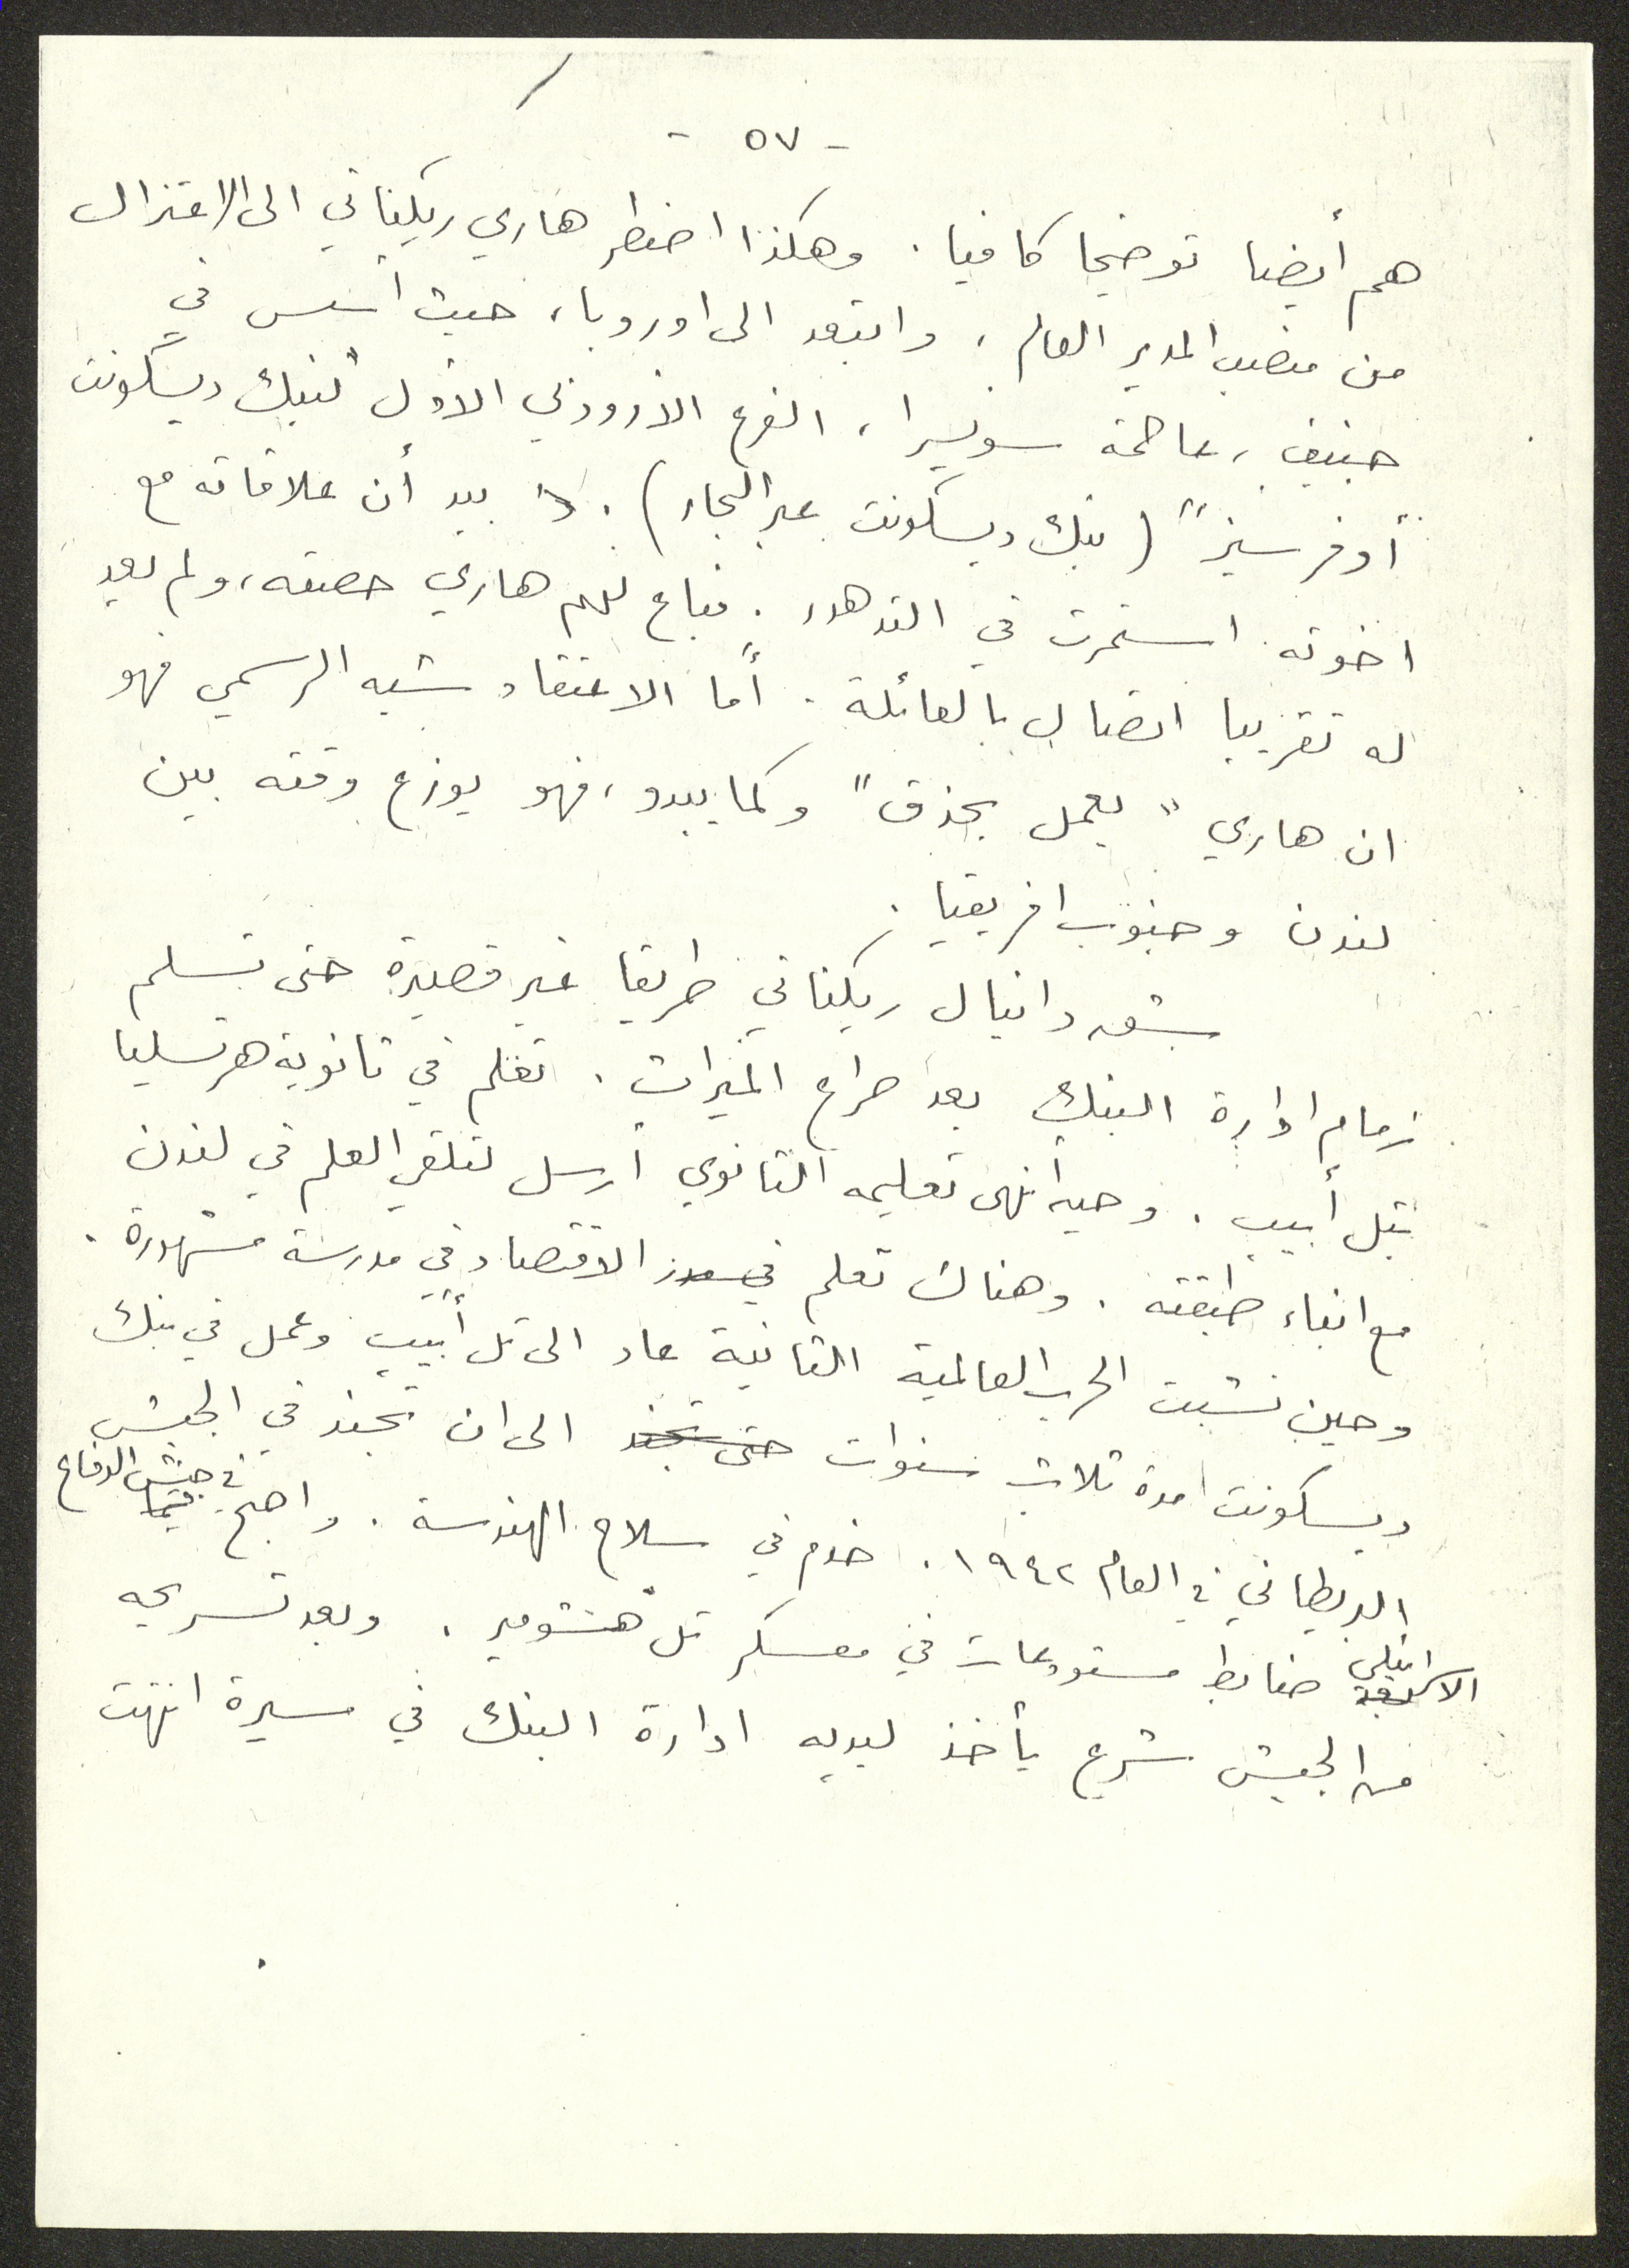 - ٥٧ -
هم أيضا توضيحا كافيا . وهكذا اضطر هاري ريكناتي الى الاعتزال
من منصب المدير العام ، وابتعد الى اوروبا ، حيث أسس في
جنيف ، عاصمة سويسرا ، الفرع الاوروبي الاول "لبنك ديسكونت
أوفرسيز" (بنك ديسكونت عبر البحار) . بيد أن علاقاته مع
اخوته استمرت في التدهور . فباع لهم هاري حصته ، ولم يعد
له تقريبا اتصال بالعائلة . أما الاعتقاد شبه الرسمي فهو
ان هاري "يعمل بحذق" وكما يبدو ، فهو يوزع وقته بين
لندن وجنوب افريقيا .
شق دانيال ريكناتي طريقا غير قصيرة حتى تسلم
زمام ادارة البنك بعد صراع الميراث . تعلم في ثانوية هرتسليا
بتل أبيب . وحين أنهى تعليمه الثانوي أرسل لتلقي العلم في لندن
مع ابناء طبقته . وهناك تعلم الاقتصاد في مدرسة مشهورة .
وحين نشبت الحرب العالمية الثانية عاد الى تل أبيب وعمل في بنك
ديسكونت لمدة ثلاث سنوات حتى تجند الى ان تجند في الجيش
البريطاني في العام ١٩٤٢ . خدم في سلاح الهندسة . واصبح في جيش الدفاع
الاسرائيلي ضابط مستودعات في معسكر تل هشومير . وبعد تسريحه
من الجيش شرع يأخذ ليديه ادارة البنك في مسيرة انتهت